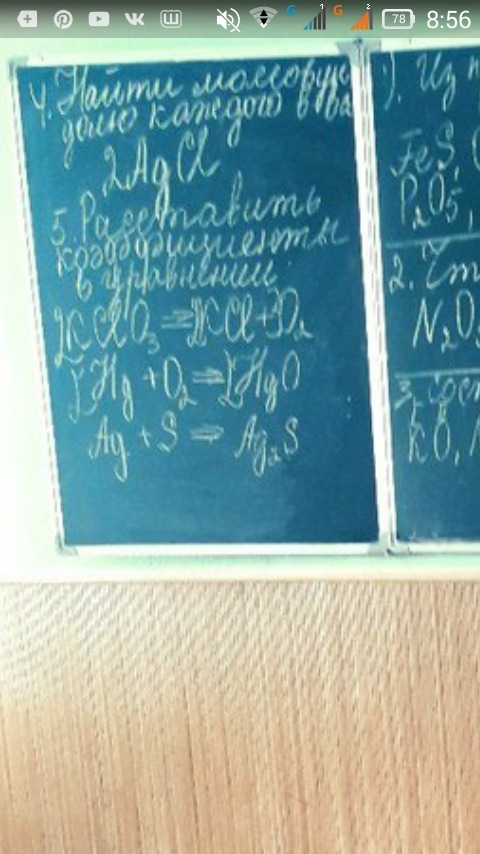 78 8:56
4. Найти массовую
долю каждого в-ва
2AgCl
5. Расставить
коэффициенты
в уравнении:
2KClO₃ = 2KCl + 3O₂
2Hg + O₂ = 2HgO
Ag + S = Ag₂S
). Из
FeS,
P₂O₅,
2.
N₂O
3.
KO,